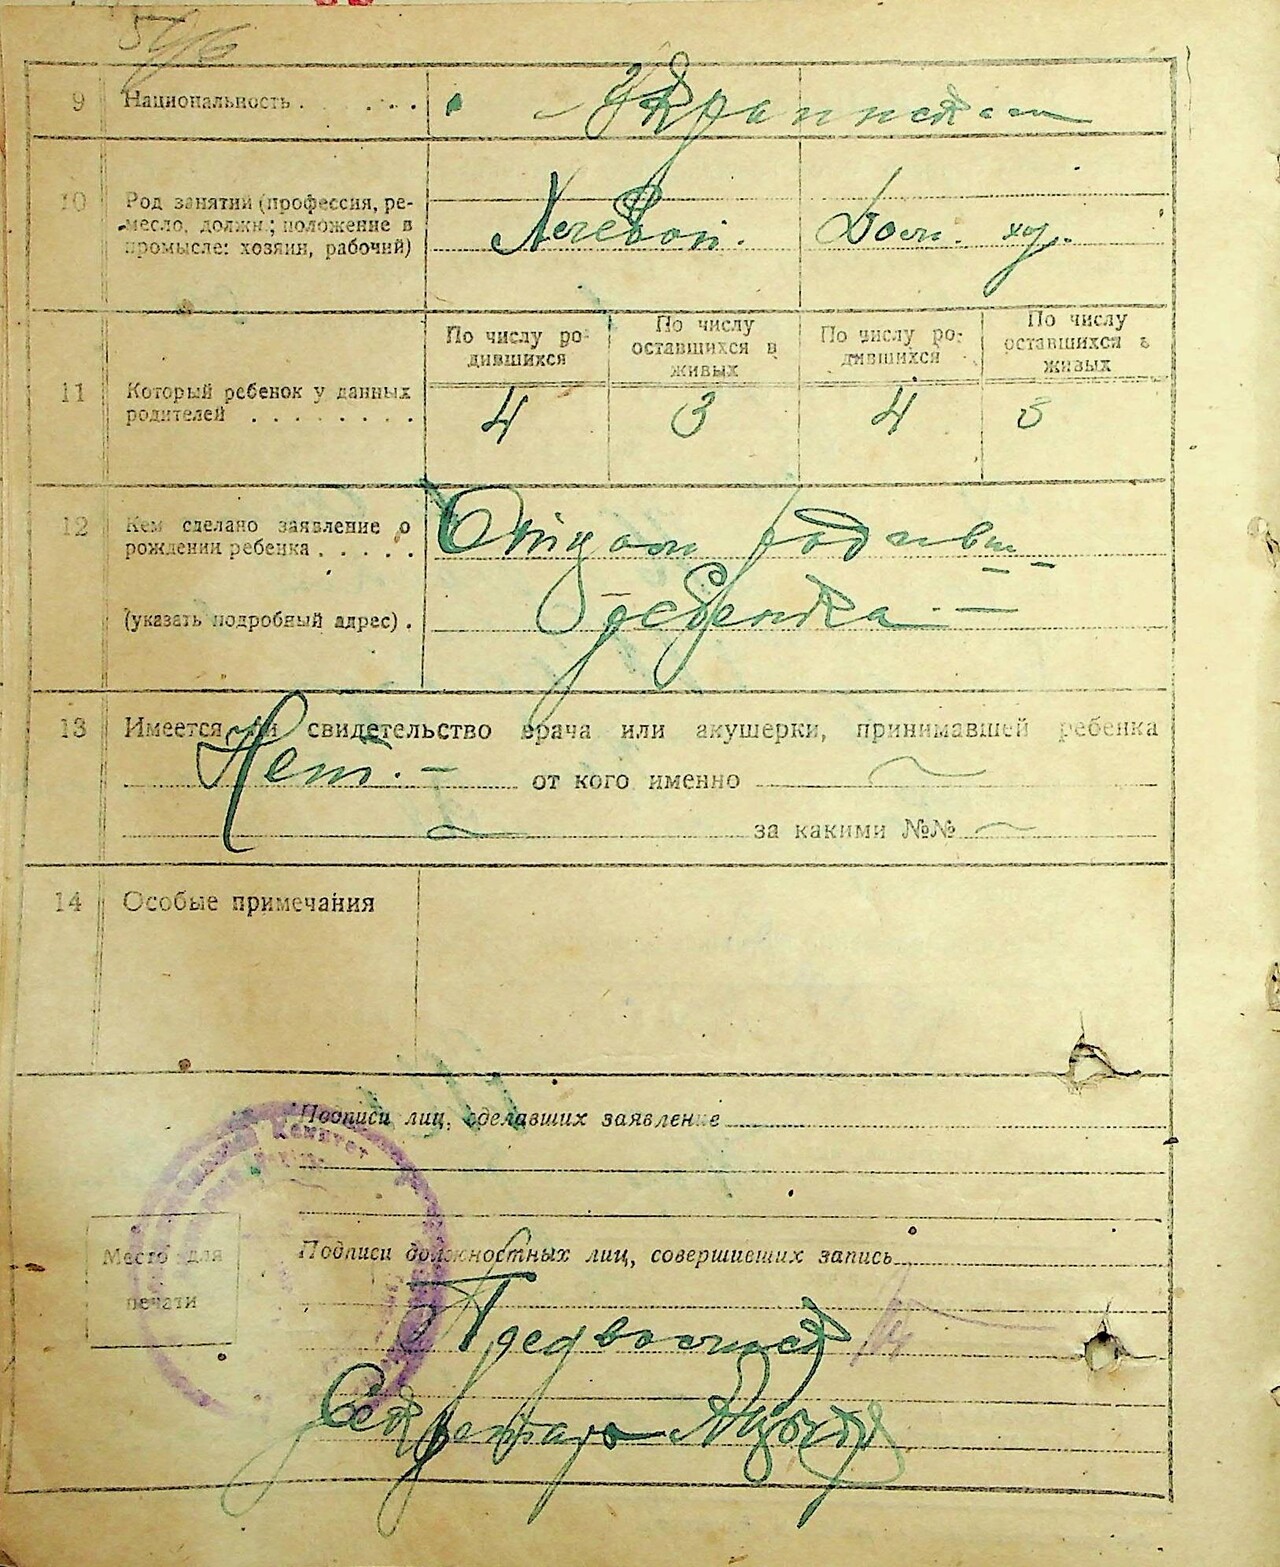 54/6
9 Национальность . . . . . Украинская
10 Род занятий (профессия, ре-
месло, должн.; положение в
промысле: хозяин, рабочий)
Хлебоп. Дом. хоз.
По числу ро-
дившихся
По числу
оставшихся в
живых
По числу ро-
дившихся
По числу
оставшихся в
живых
11 Который ребенок у данных
родителей . . . . . . . .
4 3 4 3
12 Кем сделано заявление о
рождении ребенка . . . . .
(указать подробный адрес) .
Отцом родивш
ребенка
13 Имеется ли свидетельство врача или акушерки, принимавшей ребенка
Нет. — от кого именно
за какими №№
14 Особые примечания
Подписи лиц, сделавших заявление
Комитет
Место для
печати
Подписи должностных лиц, совершивших запись
Секретарь